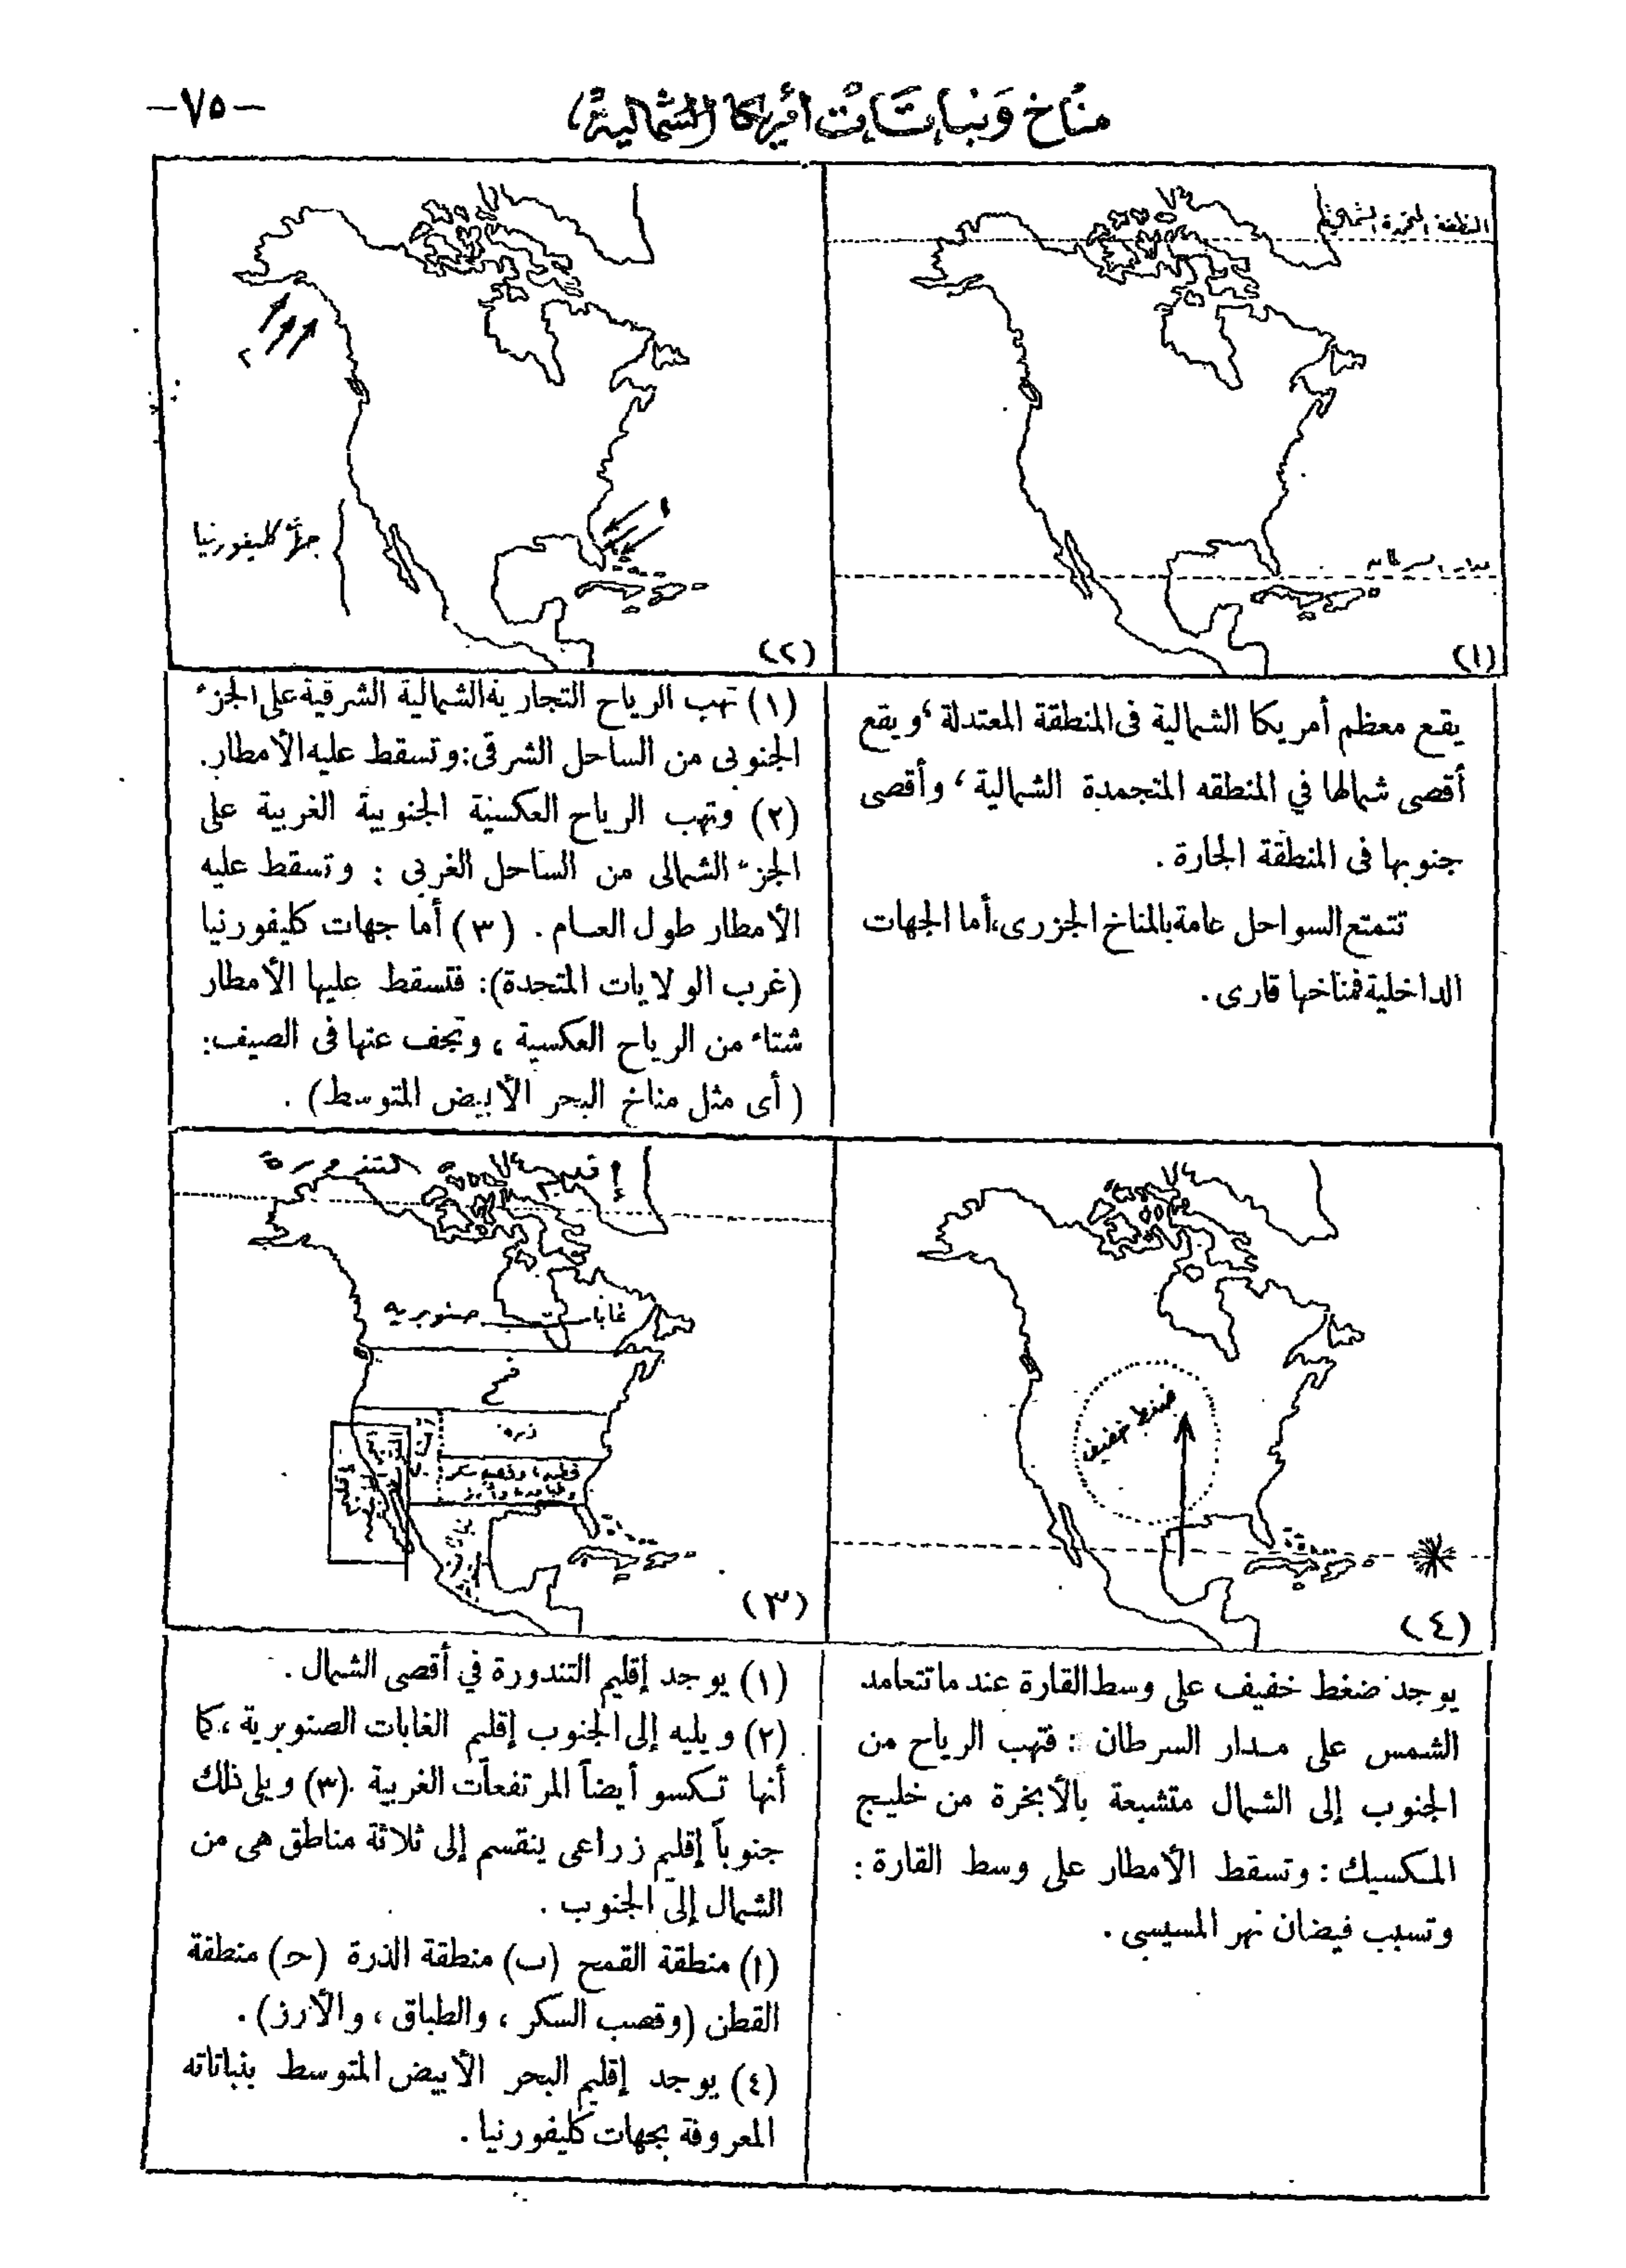 مناخ ونباتات أمريكا الشمالية
-٧٥-
المنطقة المتجمدة الشمالية
مدار السرطان
(١)
٢
١
جهات كليفورنيا
(٢)
يقع معظم أمريكا الشمالية فى المنطقة المعتدلة، ويقع
أقصى شمالها في المنطقه المتجمدة الشمالية، وأقصى
جنوبها فى المنطقة الحارة.
تتمتع السواحل عامة بالمناخ الجزرى، أما الجهات
الداخلية فمناخها قارى.
(١) تهب الرياح التجارية الشمالية الشرقية على الجزء
الجنوبى من الساحل الشرقى: وتسقط عليه الأمطار.
(٢) وتهب الرياح العكسية الجنوبية الغربية على
الجزء الشمالى من الساحل الغربى: وتسقط عليه
الأمطار طول العام. (٣) أما جهات كليفورنيا
(غرب الولايات المتحدة): فتسقط عليها الأمطار
شتاء من الرياح العكسية، وتجف عنها فى الصيف:
(أى مثل مناخ البحر الأبيض المتوسط).
ضغط خفيف
(٤)
إقليم التندورة
غابات صنوبرية
قمح
ذرة
قطن وقصب سكر
وطباق وأرز
(٣)
يوجد ضغط خفيف على وسط القارة عند ما تتعامد
الشمس على مدار السرطان: فتهب الرياح من
الجنوب إلى الشمال متشبعة بالأبخرة من خليج
المكسيك: وتسقط الأمطار على وسط القارة:
وتسبب فيضان نهر المسيسبى.
(١) يوجد إقليم التندورة في أقصى الشمال.
(٢) ويليه إلى الجنوب إقليم الغابات الصنوبرية، كا
أنها تكسو أيضاً المرتفعات الغربية. (٣) ويلى ذلك
جنوباً إقليم زراعى ينقسم إلى ثلاثة مناطق هى من
الشمال إلى الجنوب.
(ا) منطقة القمح (ب) منطقة الذرة (ح) منطقة
القطن (وقصب السكر، والطباق، والأرز).
(٤) يوجد إقليم البحر الأبيض المتوسط بنباتاته
المعروفة بجهات كليفورنيا.